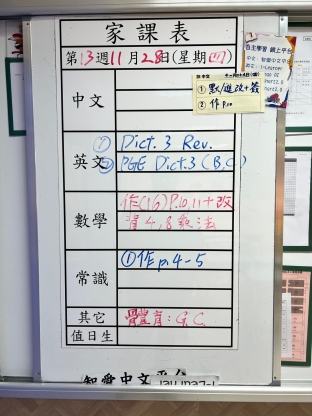 家課表
第13週11月28日(星期四)
中文
① 默/進改+簽
② 作P.10
英文
① Dict. 3 Rev.
② PGE Dict.3 (B,C)
數學
作(16)P.10,11+改
背4,8乘法
常識
①作p.4-5
其它
體育: G.C.
值日生
自主學習 網上平台
智愛中文平台
i-Learner